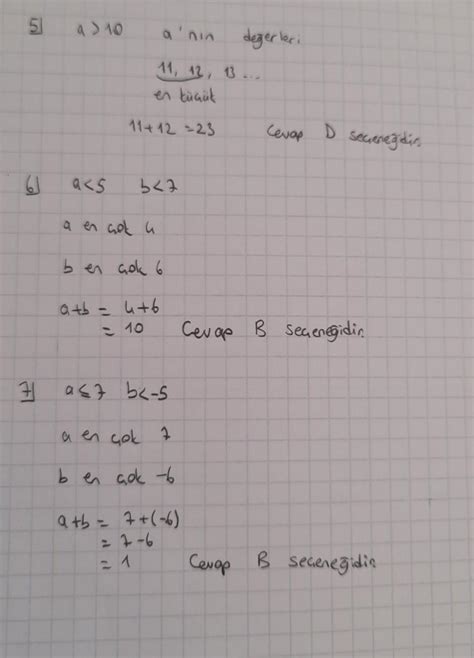 5) a > 10 a'nın değerleri
11, 12, 13 ...
en küçük
11+12 = 23 Cevap D seçeneğidir.
6) a<5 b<7
a en çok 4
b en çok 6
a+b = 4+6
= 10 Cevap B seçeneğidir.
7) a≤7 b<-5
a en çok 7
b en çok -6
a+b = 7+(-6)
= 7-6
= 1 Cevap B seçeneğidir.